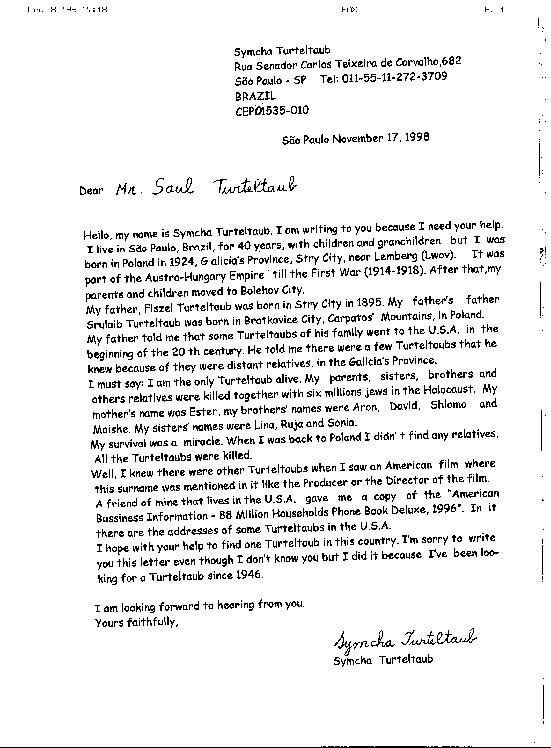 Symcha Turteltaub
Rua Senador Carlos Teixeira de Carvalho,682
São Paulo - SP Tel: 011-55-11-272-3709
BRAZIL
CEP01535-010
São Paulo November 17, 1998
Dear Mr. Saul Turteltaub
Hello, my name is Symcha Turteltaub. I am writing to you because I need your help.
I live in São Paulo, Brazil, for 40 years, with children and granchildren but I was
born in Poland in 1924, Galicia's Province, Stry City, near Lemberg (Lwov). It was
part of the Austro-Hungary Empire till the First War (1914-1918). After that,my
parents and children moved to Bolehov City.
My father, Fiszel Turteltaub was born in Stry City in 1895. My father's father
Srulaib Turteltaub was born in Bratkovice City, Carpatos' Mountains, in Poland.
My father told me that some Turteltaubs of his family went to the U.S.A. in the
beginning of the 20 th century. He told me there were a few Turteltaubs that he
knew because of they were distant relatives, in the Galicia's Province.
I must say: I am the only Turteltaub alive. My parents, sisters, brothers and
others relatives were killed together with six millions jews in the Holocaust. My
mother's name was Ester, my brothers' names were Aron, David, Shlomo and
Moishe. My sisters' names were Lina, Ruja and Sonia.
My survival was a miracle. When I was back to Poland I didn' t find any relatives.
All the Turteltaubs were killed.
Well, I knew there were other Turteltaubs when I saw an American film where
this surname was mentioned in it like the Producer or the Director of the film.
A friend of mine that lives in the U.S.A. gave me a copy of the "American
Bussiness Information - 88 Million Households Phone Book Deluxe, 1996". In it
there are the addresses of some Turteltaubs in the U.S.A.
I hope with your help to find one Turteltaub in this country. I'm sorry to write
you this letter even though I don't know you but I did it because I've been loo-
king for a Turteltaub since 1946.
I am looking forward to hearing from you.
Yours faithfully,
Symcha Turteltaub
Symcha Turteltaub